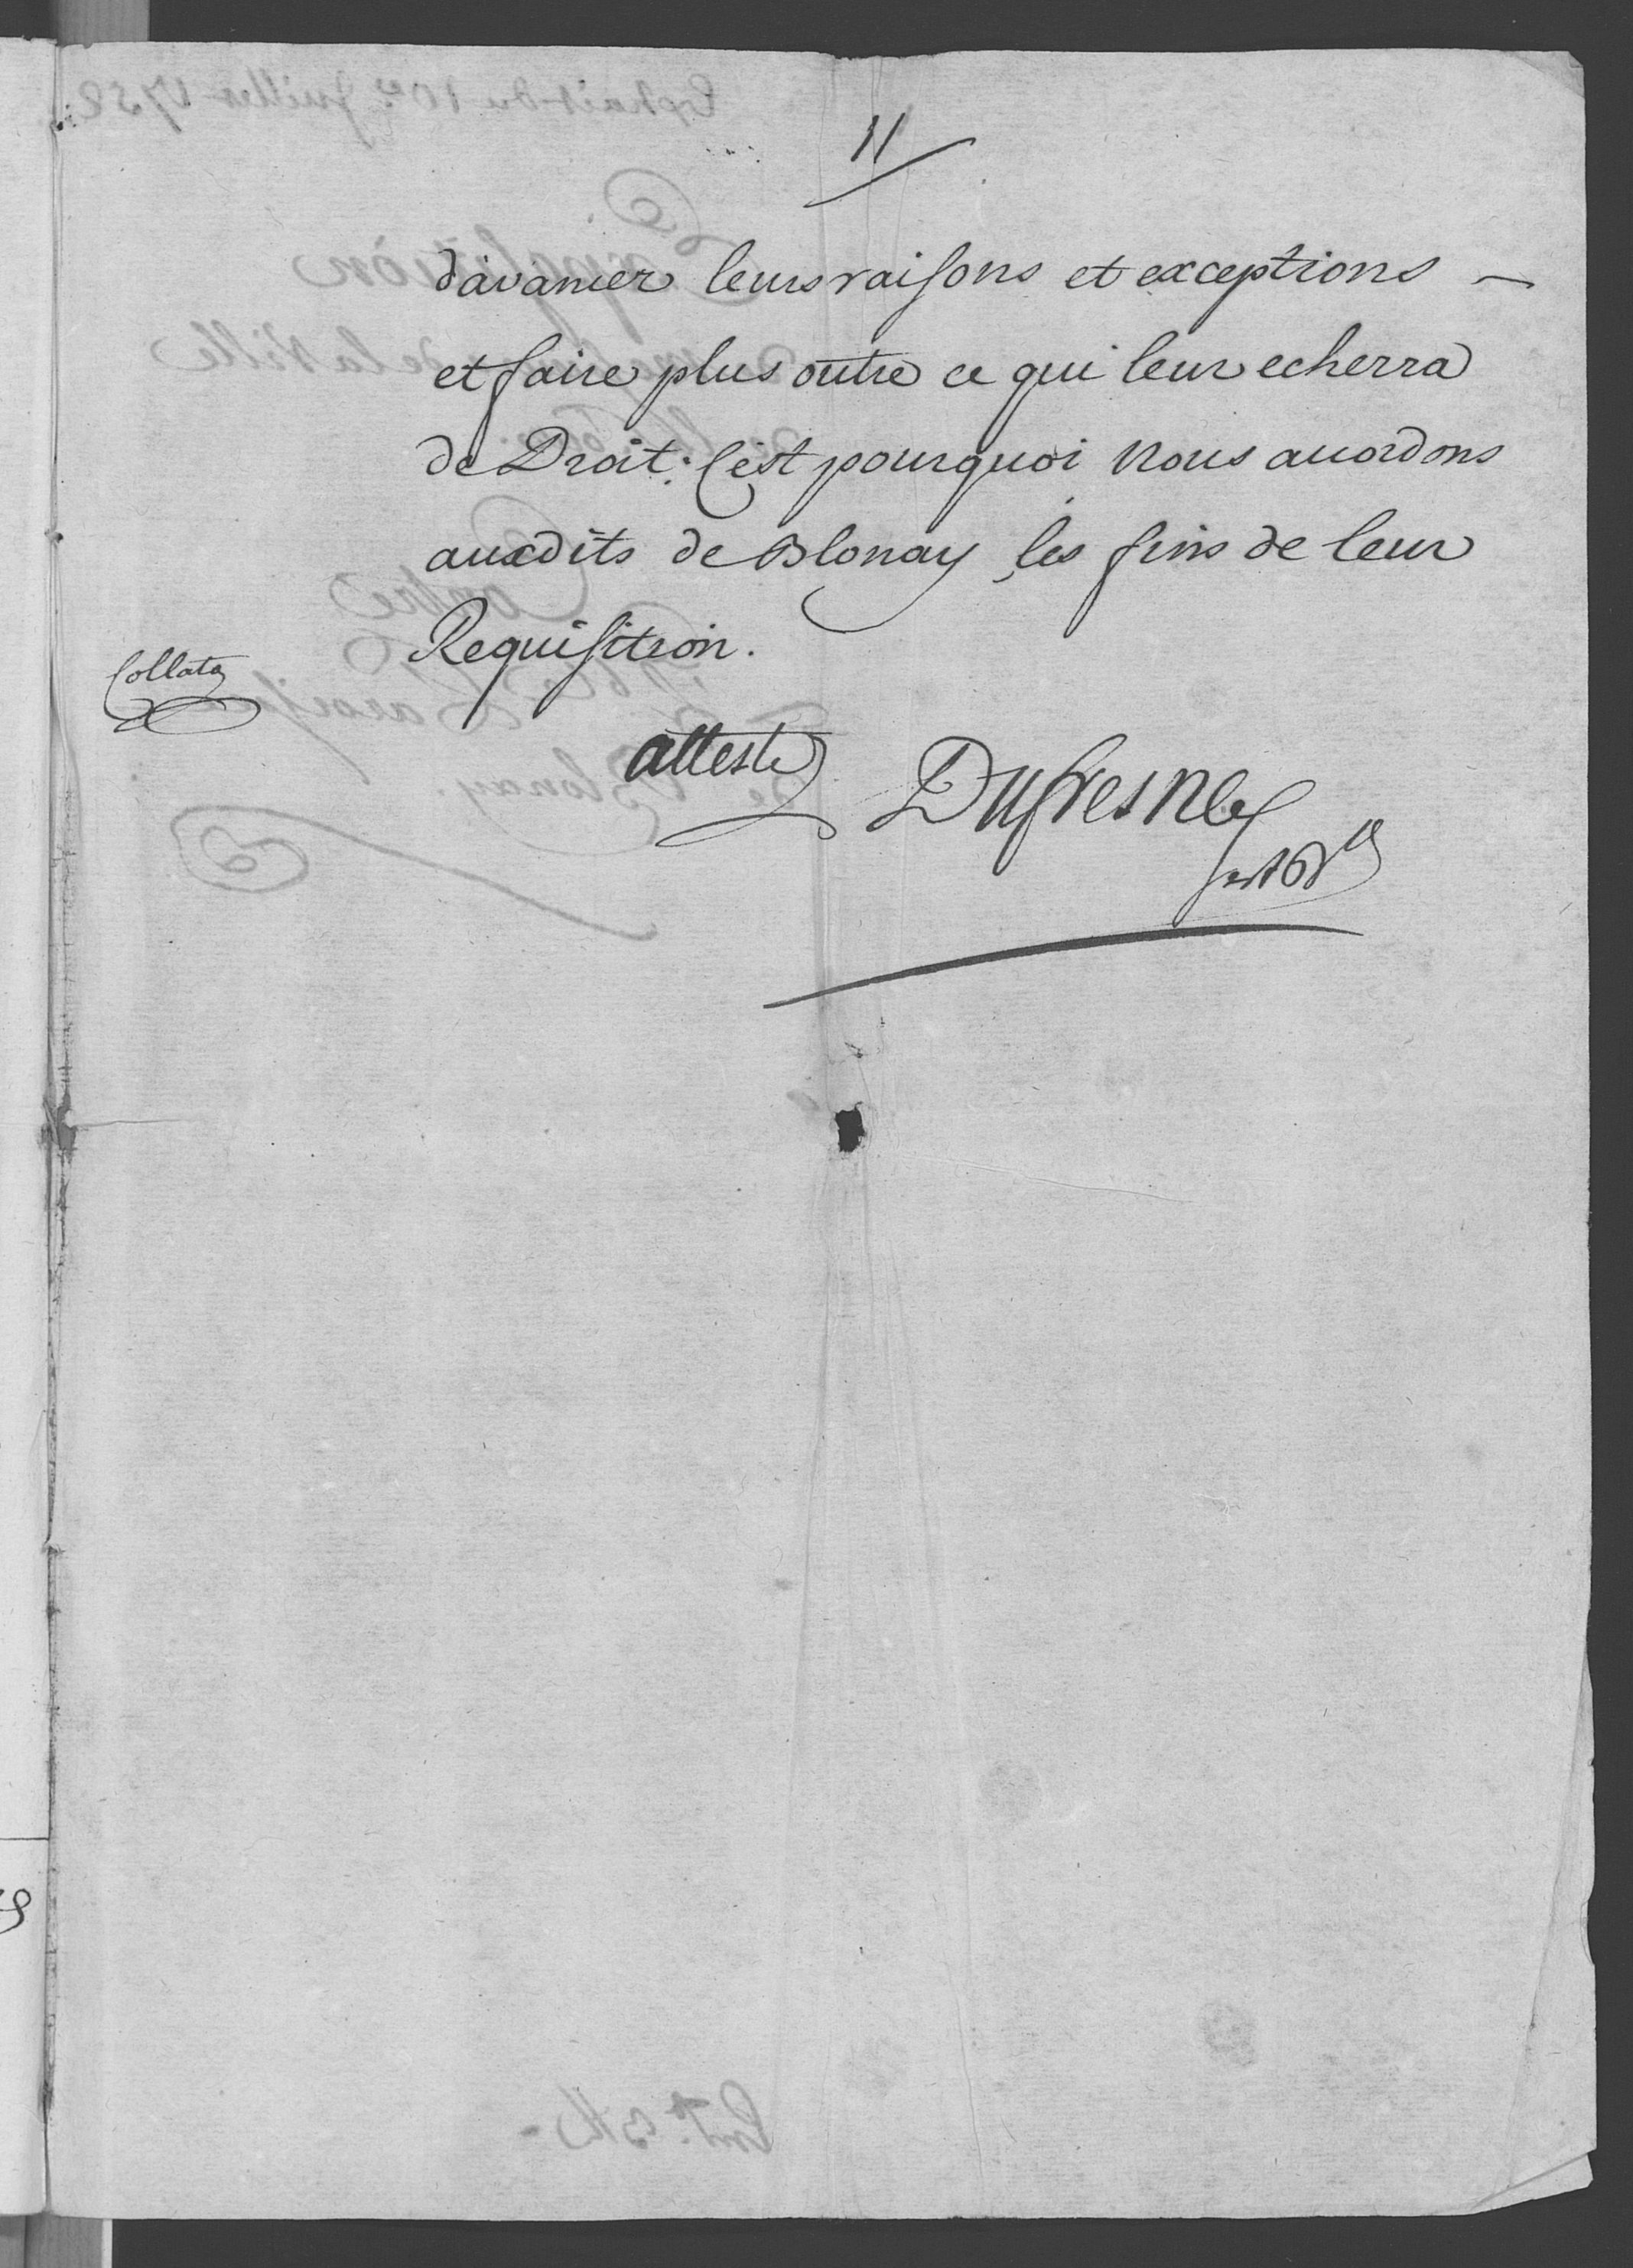 11
d'avancer leurs raisons et exceptions –
et faire plus outre ce qui leur echerra
de Droit. C'est pourquoi Nous accordons
auxdits de Blonay, les fins de leur
Requisition.
Collata
atteste Dufresne